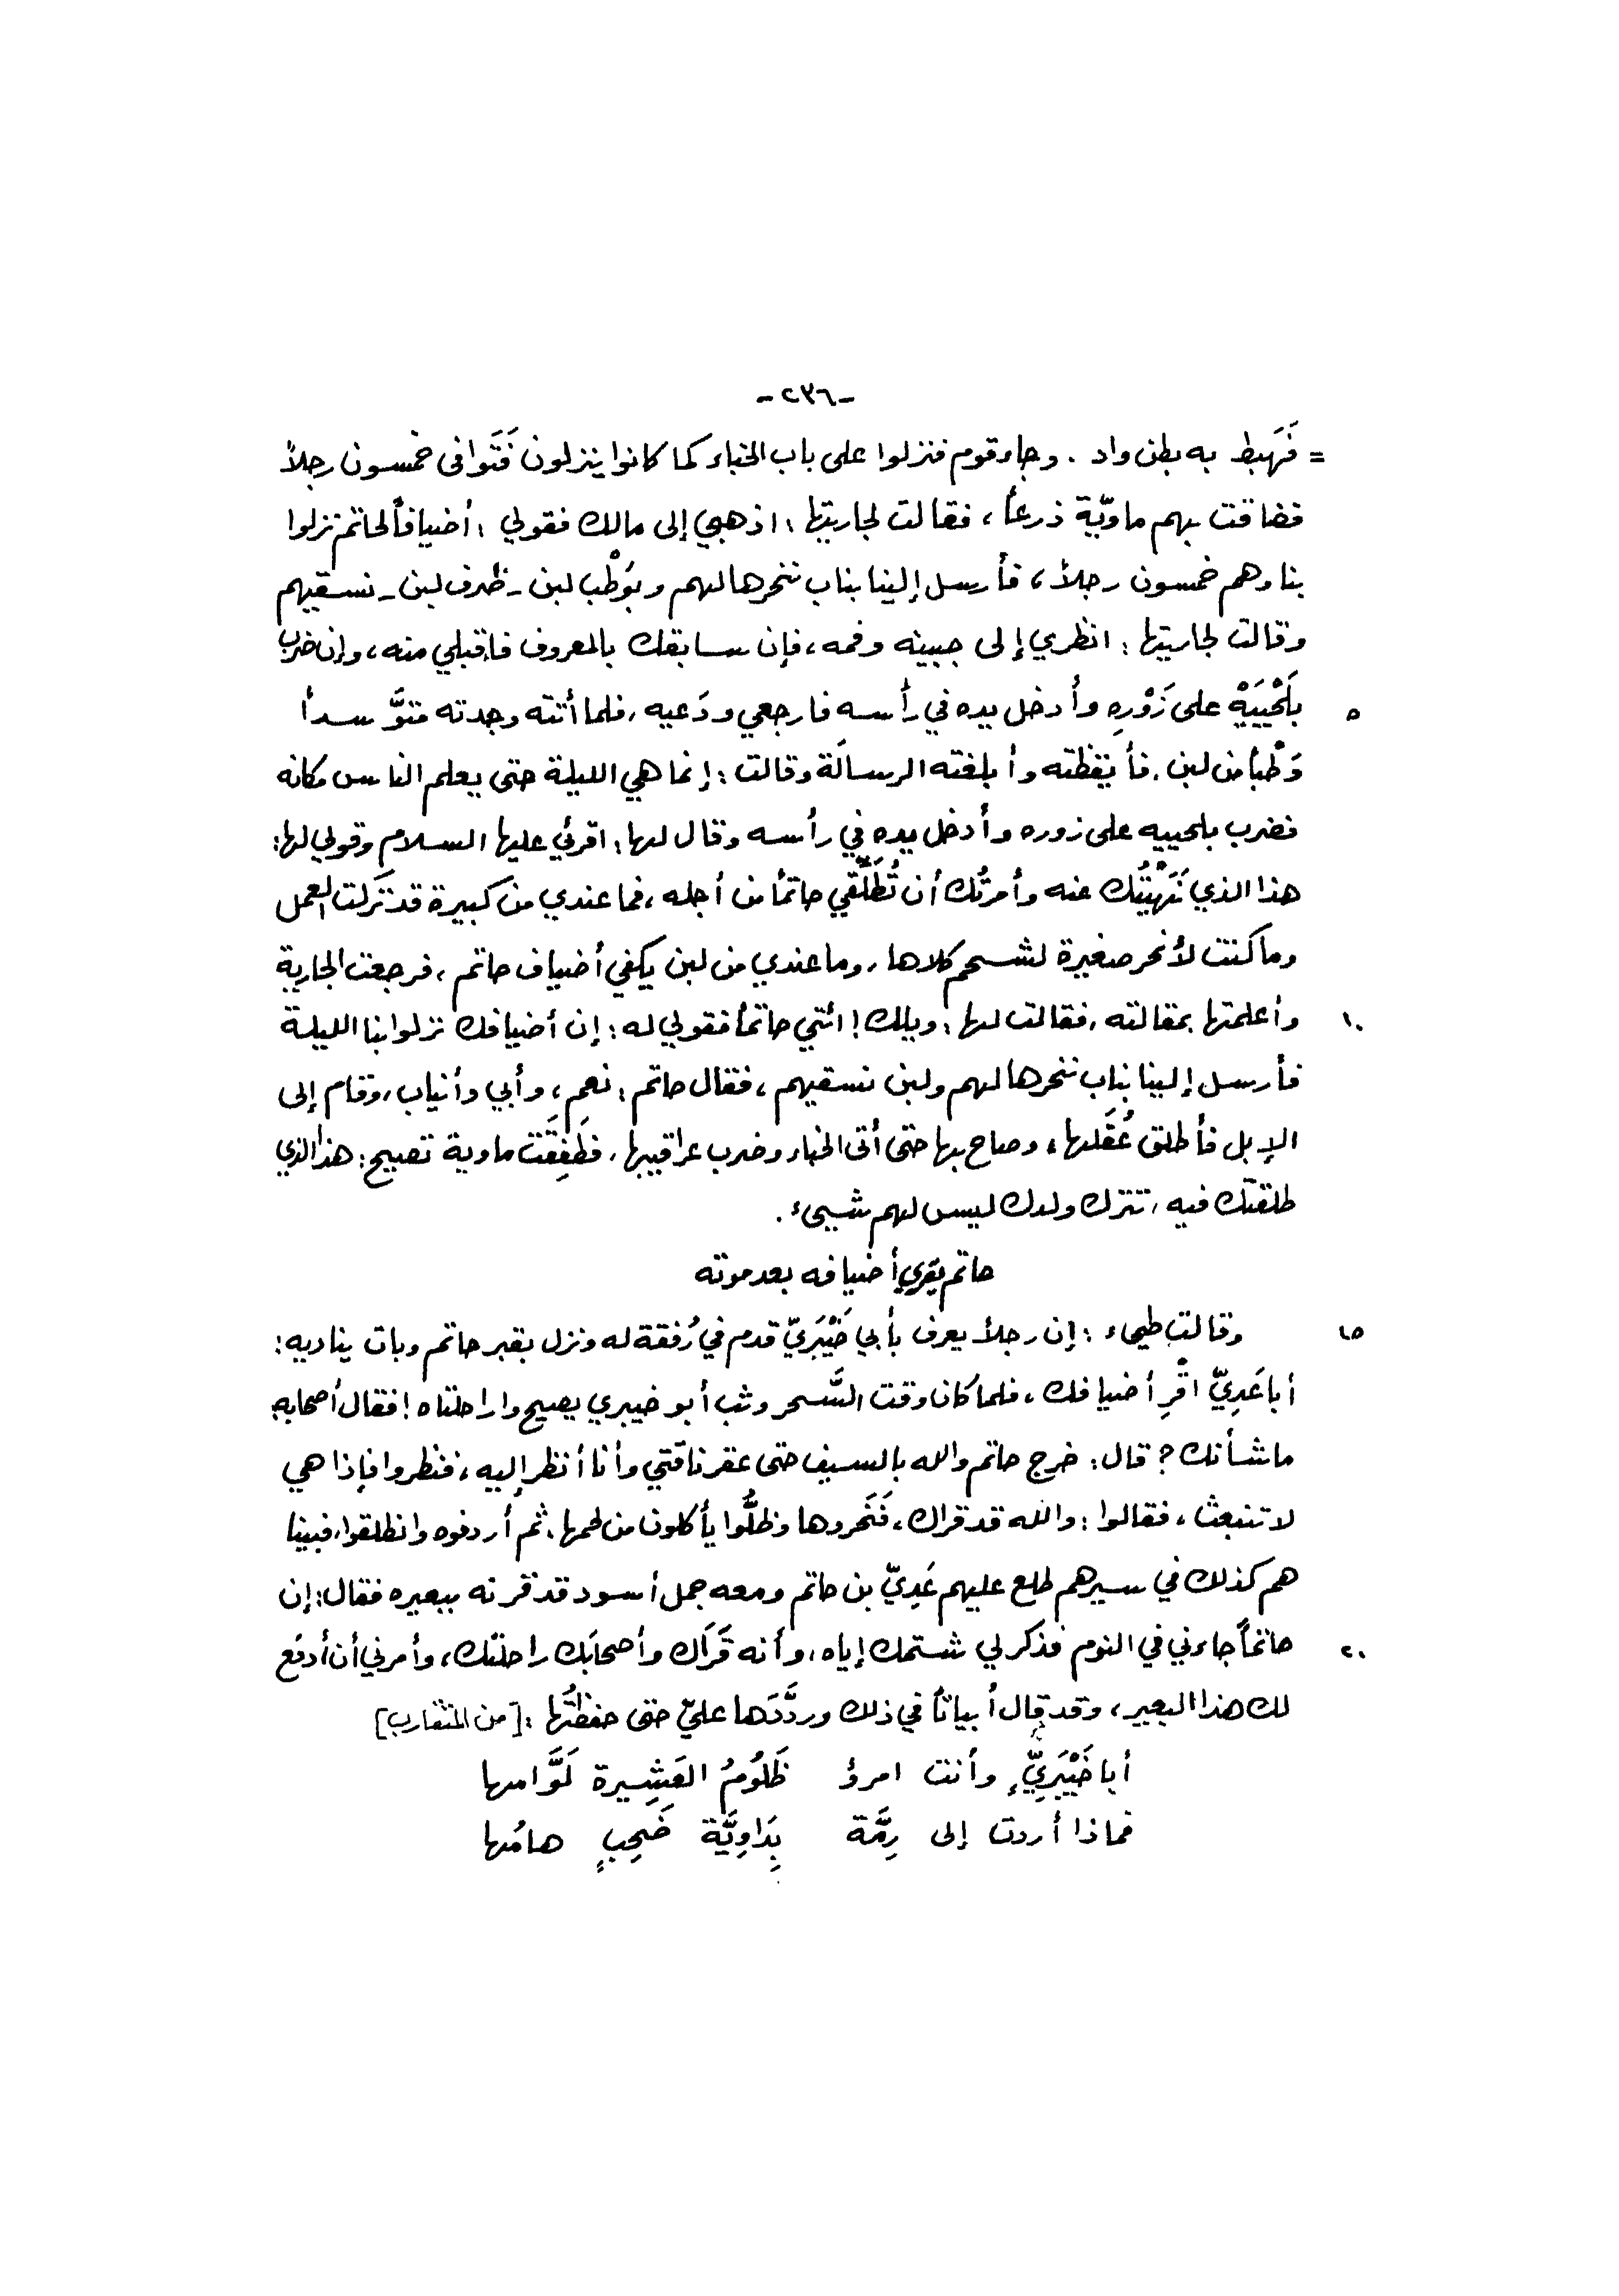 -٢٣٦-
= فَهَبط به بطن واد . وجاء قوم فنزلوا على باب الخباء كما كانوا ينزلون فَتَوافى خمسون رجلاً
فضاقت بهم ماويّة ذرعاً ، فقالت لجاريتها : اذهبي إلى مالك فقولي : أضيافاً لحاتم نزلوا
بنا وهم خمسون رجلاً ، فأرسل إلينا بناب ننحرها لهم وبوَطْب لبن - ظرف لبن - نسقيهم
وقالت لجاريتها : انظري إلى جبينه وفمه ، فإن سابقك بالمعروف فاقبلي منه ، وإن ضرب
٥ بلَحْيَيْه على زَوْرِه وأدخل يده في رأسه فارجعي ودَعيه ، فلما أتته وجدته متوَّسداً
وَطْباً من لبن . فأيقظته وأبلغته الرسالَة وقالت : إنما هي الليلة حتى يعلم الناس مكانه
فضرب بلحييه على زوره وأدخل يده في رأسه وقال لها : اقرئي عليها السلامِ وقولي لها :
هذا الذي نَهْيتُك عنه وأمرتُك أن تُطَلّقي حاتماً من أجله ، فما عندي من كبيرة قد تَركت العمل
وما كنت لأنحر صغيرة لشحم كلاها ، وما عندي من لبن يكفي أضياف حاتم ، فرجعت الجارية
١٠ وأعلمتها بمقالته ، فقالت لها : ويلك ! ائتي حاتماً فقولي له : إن أضيافك نزلوا بنا الليلة
فأرسل إلينا بناب ننحرها لهم ولبن نسقيهم ، فقال حاتم : نعم ، وأبي وأنياب ، وقام إلى
الإبل فأطلق عُقَلها ، وصاح بها حتى أتى الخباء وضرب عراقيبها ، فطَفِقَت ماوية تصيح : هذا الذي
طلقتك فيه ، تترك ولدك ليس لهم شيىء .
حاتم يقري أضيافه بعد موته
١٥ وقالت طيىء : إن رجلاً يعرف بأبي خَيْبَريّ قدم في رُفقة له ونزل بقبر حاتم وبات يناديه :
أبا عَدِيّ اقْرِ أضيافك ، فلما كان وقت السَّحر وثب أبو خيبري يصيح وا راحلتاه ! فقال أصحابه
ما شأنك ؟ قال : خرج حاتم والله بالسيف حتى عقر ناقتي وأنا أنظر إليه ، فنظروا فإذا هي
لا تنبعث ، فقالوا : والله قد قراك ، فَنَحروها وظلُّوا يأكلون من لحمها . ثم أردفوه وانطلقوا ، فبينا
هم كذلك في سيرهم طلع عليهم عَدِيّ بن حاتم ومعه جمل أسود قد قرنه ببعيره فقال : إن
٢٠ حاتماً جاءني في النوم فذكر لي شتمك إياه ، وأنه قَرَاك وأصحابَك راحلتك ، وأمرني أن أدفع
لك هذا البعير ، وقد قال أبياتاً في ذلك وردَّدَها عليّ حتى حفظتُها : [من المتقارب]
أبا خَيْبَرِيٍّ وأنت امرؤ ظَلُومُ العَشِيرة لَوَّامها
فماذا أردت إلى رِمَّة بِدَاوِيَّة صَخِبٍ هامُها